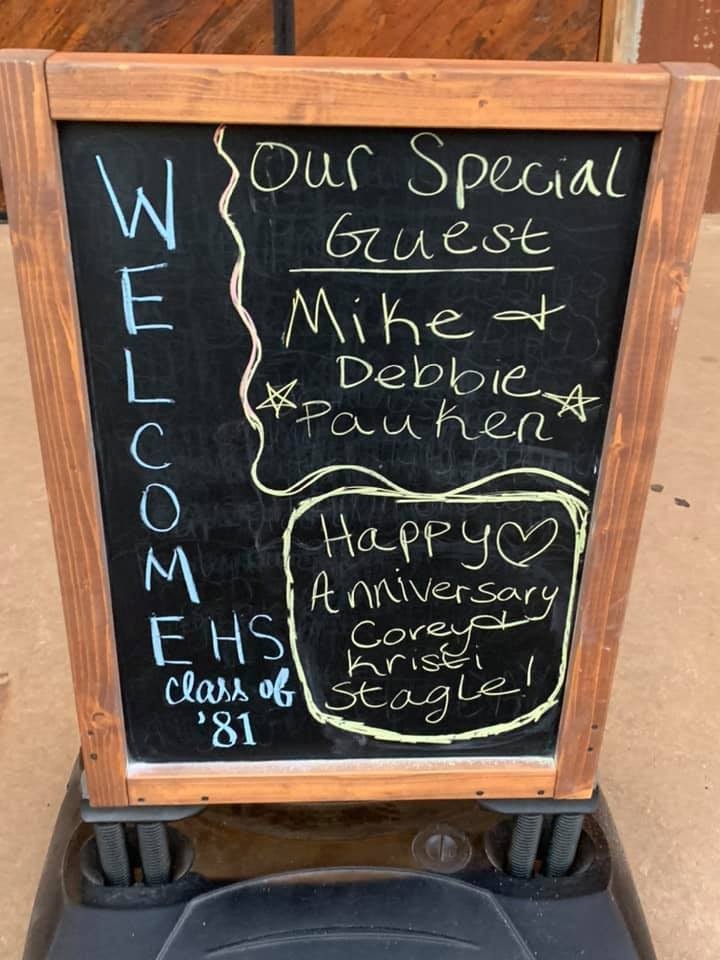 WELCOME HS
class of
'81
Our Special
Guest
Mike &
Debbie
Pauken
Happy
Anniversary
Corey &
Kristi
Stagle!